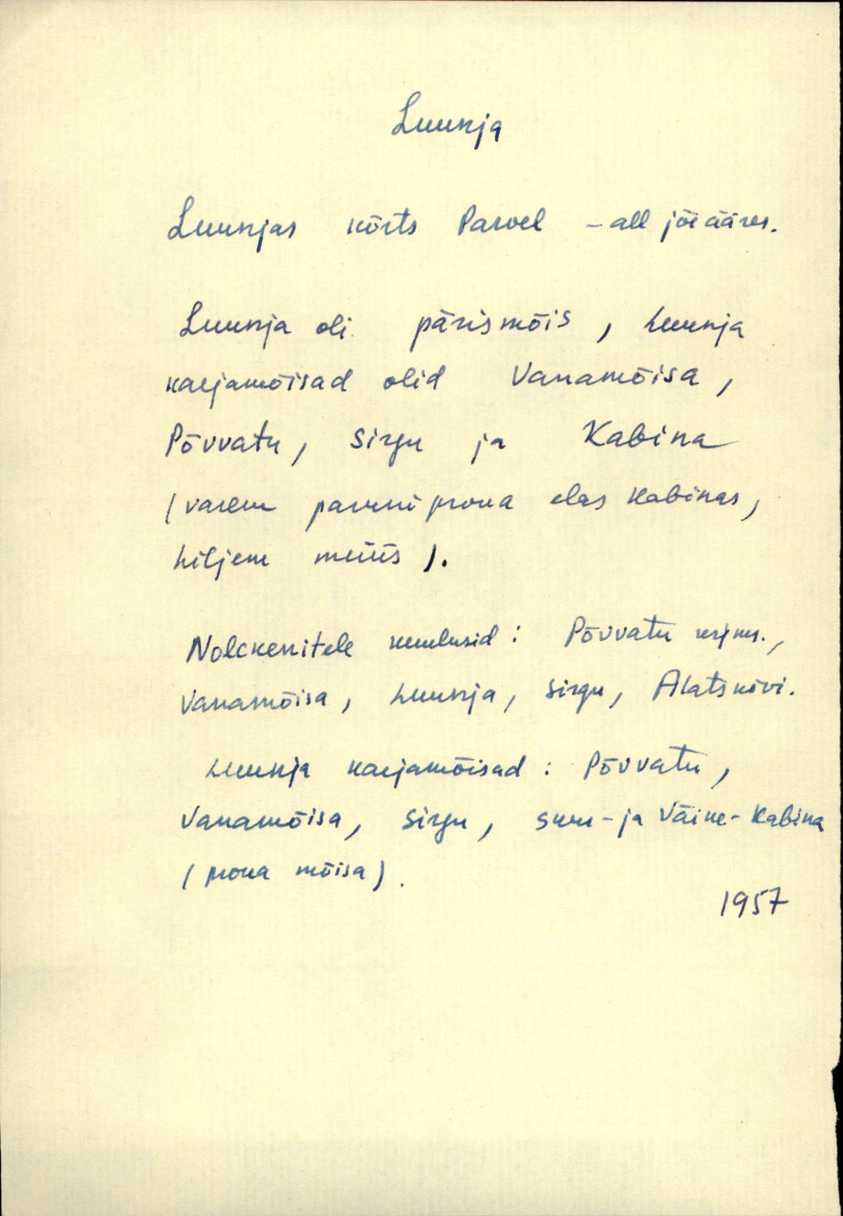 Luunja
Luunjas kõrts Parvel – all jõe ääres.
Luunja oli pärismõis, Luunja
karjamõisad olid Vanamõisa,
Põvvatu, Sirgu ja Kabina
(varem paruniproua elas Kabinas,
hiljem müüs).
Nolckenitele kuulusid: Põvvatu
Vanamõisa, Luunja, Sirgu, Alatskivi.
Luunja karjamõisad: Põvvatu,
Vanamõisa, Sirgu, Suur- ja Väike-Kabina
(proua mõisa).
1957